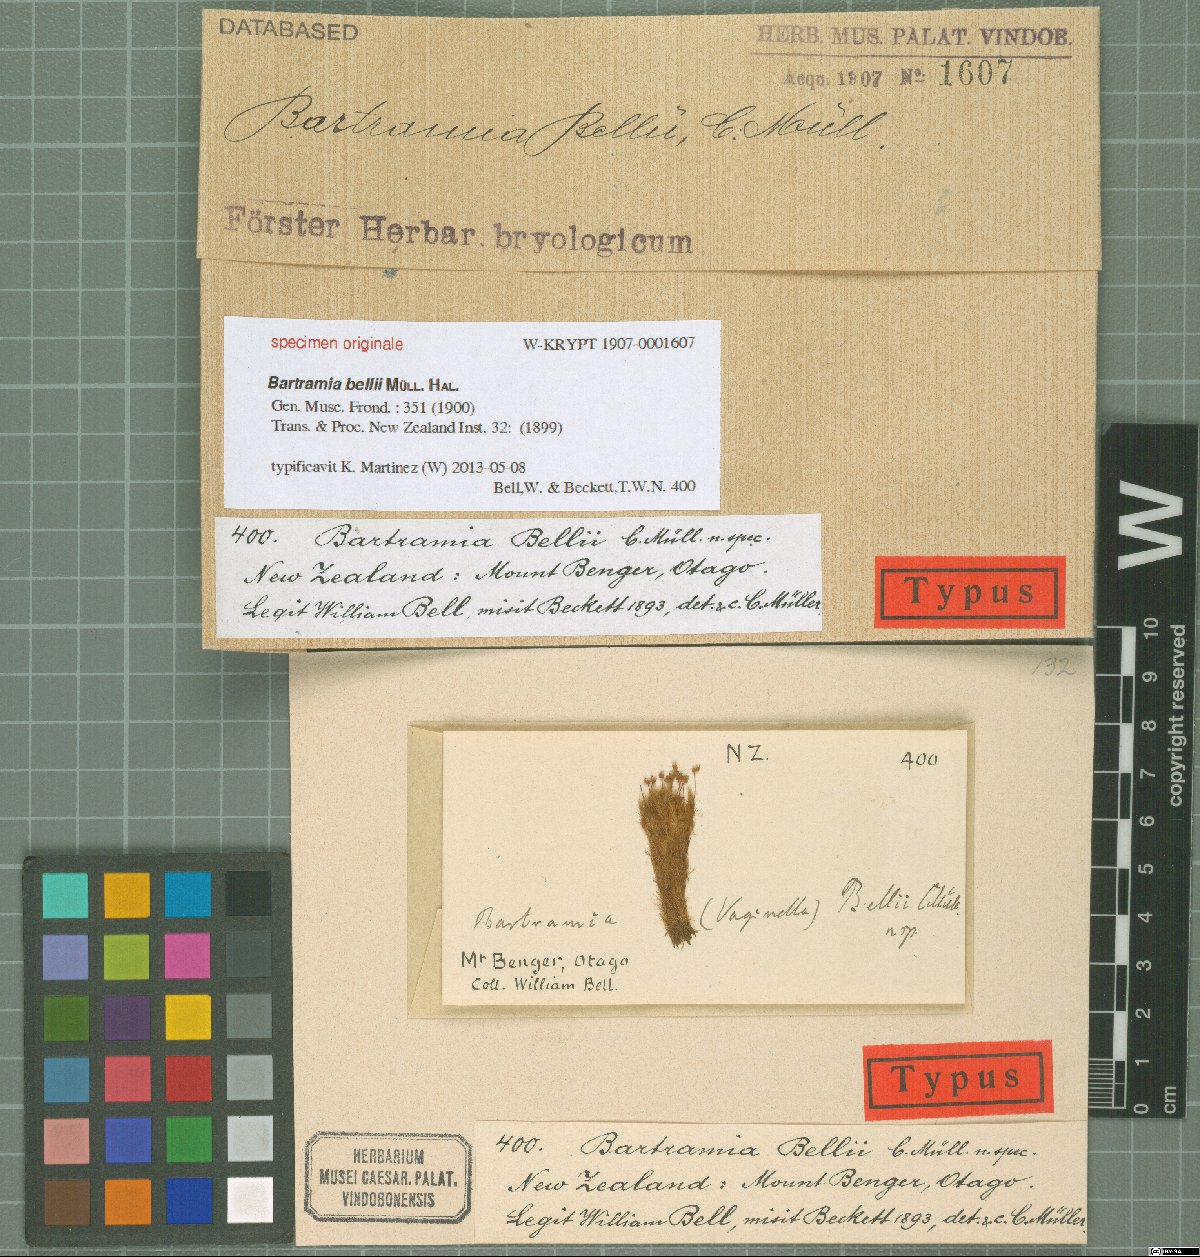 DATABASED
HERB. MUS. PALAT. VINDOB.
Acqu. 1907 No: 1607
Bartramia Bellii, C. Müll.
Förster Herbar. bryologicum
specimen originale
W-KRYPT 1907-0001607
Bartramia bellii MÜLL. HAL.
Gen. Musc. Frond. : 351 (1900)
Trans. & Proc. New Zealand Inst. 32: (1899)
typificavit K. Martinez (W) 2013-05-08
Bell,W. & Beckett,T.W.N. 400
400. Bartramia Bellii C. Müll. n. spec.
New Zealand : Mount Benger, Otago.
Legit William Bell, misit Beckett 1893, det. & c. C. Müller
Typus
W
132
NZ.
400
Bartramia (Vaginella) Bellii CMüll.
n sp.
Mt Benger, Otago
Coll. William Bell.
Typus
HERBARIUM
MUSEI CAESAR. PALAT.
VINDOBONENSIS
400. Bartramia Bellii C. Müll. n. spec.
New Zealand : Mount Benger, Otago.
Legit William Bell, misit Beckett 1893, det. & c. C. Müller
10
9
8
7
6
5
4
3
2
1
0
cm
copyright reserved